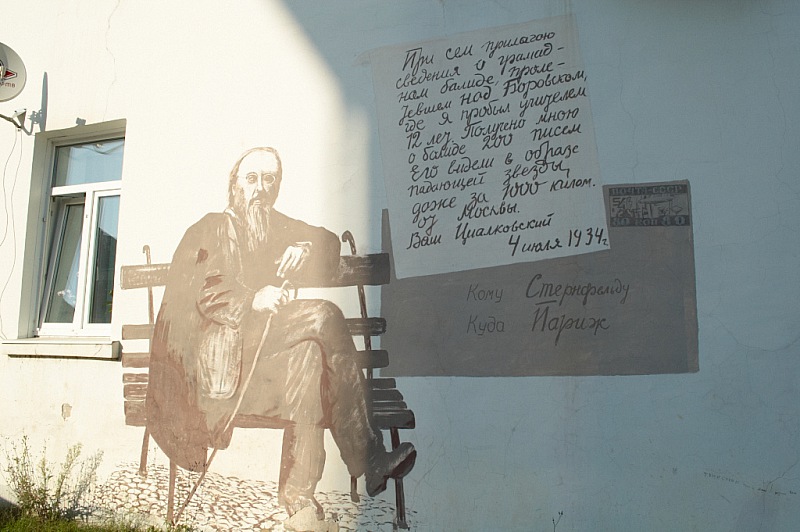 При сем прилагою
сведения о громад-
ном балиде, проле-
тевшем над Боровском,
где я пробыл учителем
12 лет. Получено мною
о балиде 200 писем
Его видели в образе
падающей звезды,
даже за 1000 килом.
от Москвы.
Ваш Циалковский
4 июля 1934г.
ПОЧТА СССР
Кому Стернфельду
Куда Париж